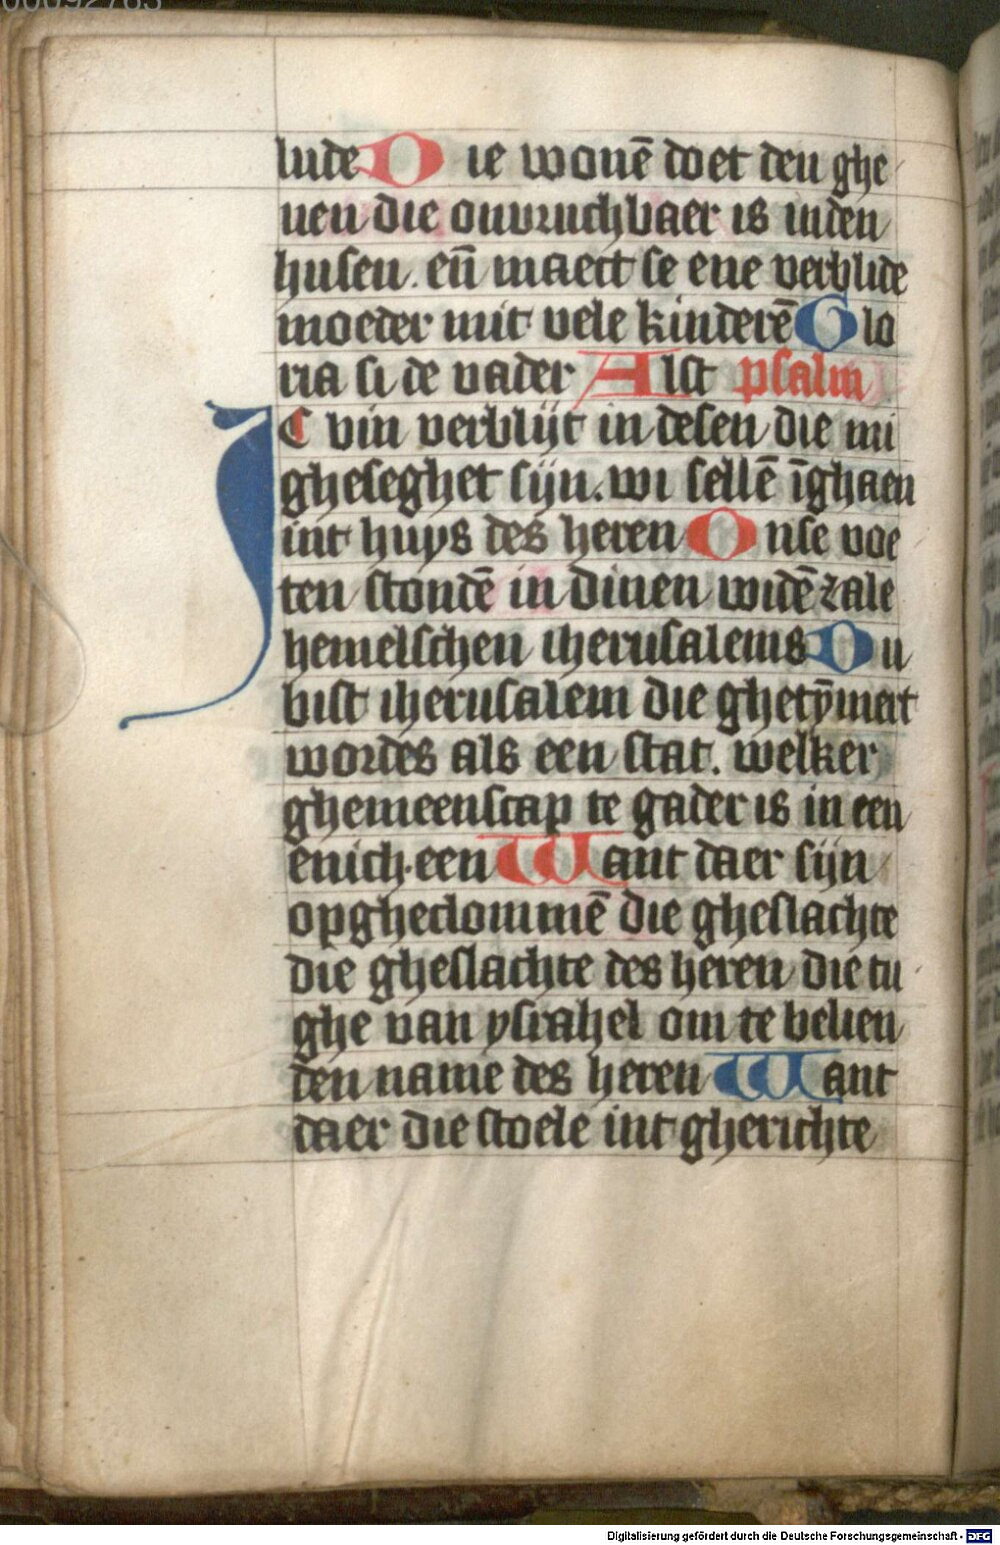 00092763
lude Die wonē doet den ghe
nen die onvruchbaer is inden
husen. en̄ maect se ene verblide
moeder mit vele kinderē Glo
ria si de vader Alst psalm
IC bin verblijt in desen die mi
gheseghet sijn. wi sellē īghaen
int huys des heren Onse voe
ten stondē in dinen widē zale
hemelschen iherusalems Du
bist iherusalem die ghetȳmert
wordes als een stat. welker
ghemeenscap te gader is in een
enich·een Want daer sijn
opgheclommē die gheslachte
die gheslachte des heren die tu
ghe van ysrahel om te belien
den name des heren Want
daer die stoele int gherichte
Digitalisierung gefördert durch die Deutsche Forschungsgemeinschaft - DFG